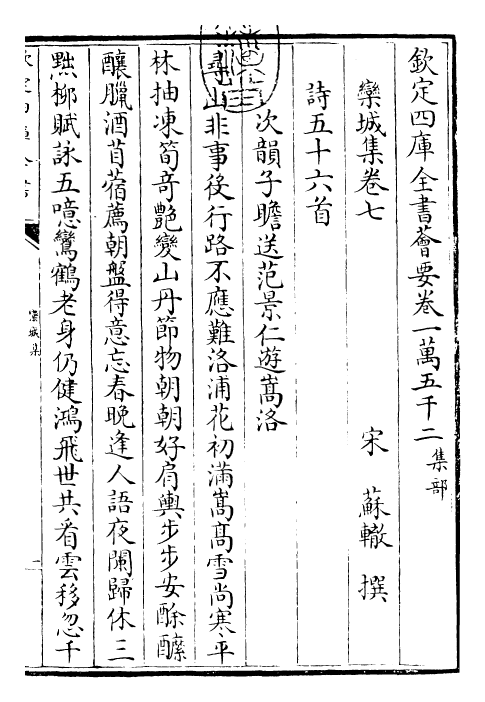 欽定四庫全書薈要卷一萬五千二 集部
欒城集卷七 宋 蘇轍 撰
詩五十六首
次韻子瞻送范景仁遊嵩洛
尋山非事役行路不應難洛浦花初滿嵩髙雪尚寒平
林抽凍筍竒艷變山丹節物朝朝好肩輿步步安酴醾
釀臘酒苜蓿薦朝盤得意忘春晚逢人語夜闌歸休三
黜柳賦詠五噫鸞鶴老身仍健鴻飛世共看雲移忽千
欒城集
一